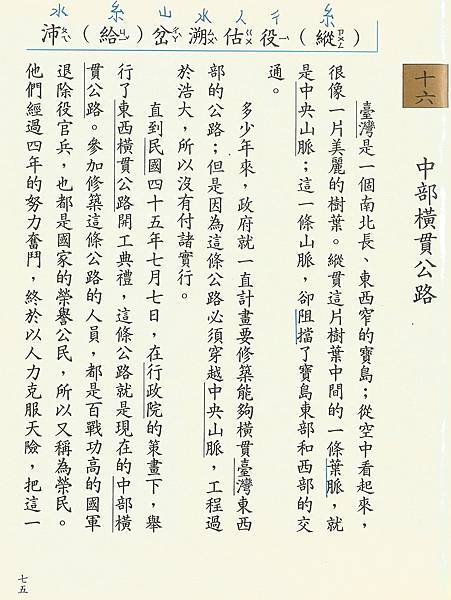 十六
中部橫貫公路
糸 彳 人 水 山 糸 水
（縱ㄗㄨㄥ）役ㄧˋ估ㄍㄨ溯ㄙㄨˋ岔ㄔㄚˋ（給ㄐㄧˇ）沛ㄆㄟˋ
臺灣是一個南北長、東西窄的寶島；從空中看起來，
很像一片美麗的樹葉。縱貫這片樹葉中間的一條葉脈，就
是中央山脈；這一條山脈，卻阻擋了寶島東部和西部的交
通。
多少年來，政府就一直計畫要修築能夠橫貫臺灣東西
部的公路；但是因為這條公路必須穿越中央山脈，工程過
於浩大，所以沒有付諸實行。
直到民國四十五年七月七日，在行政院的策畫下，舉
行了東西橫貫公路開工典禮，這條公路就是現在的中部橫
貫公路。參加修築這條公路的人員，都是百戰功高的國軍
退除役官兵，也都是國家的榮譽公民，所以又稱為榮民。
他們經過四年的努力奮鬥，終於以人力克服天險，把這一
七五